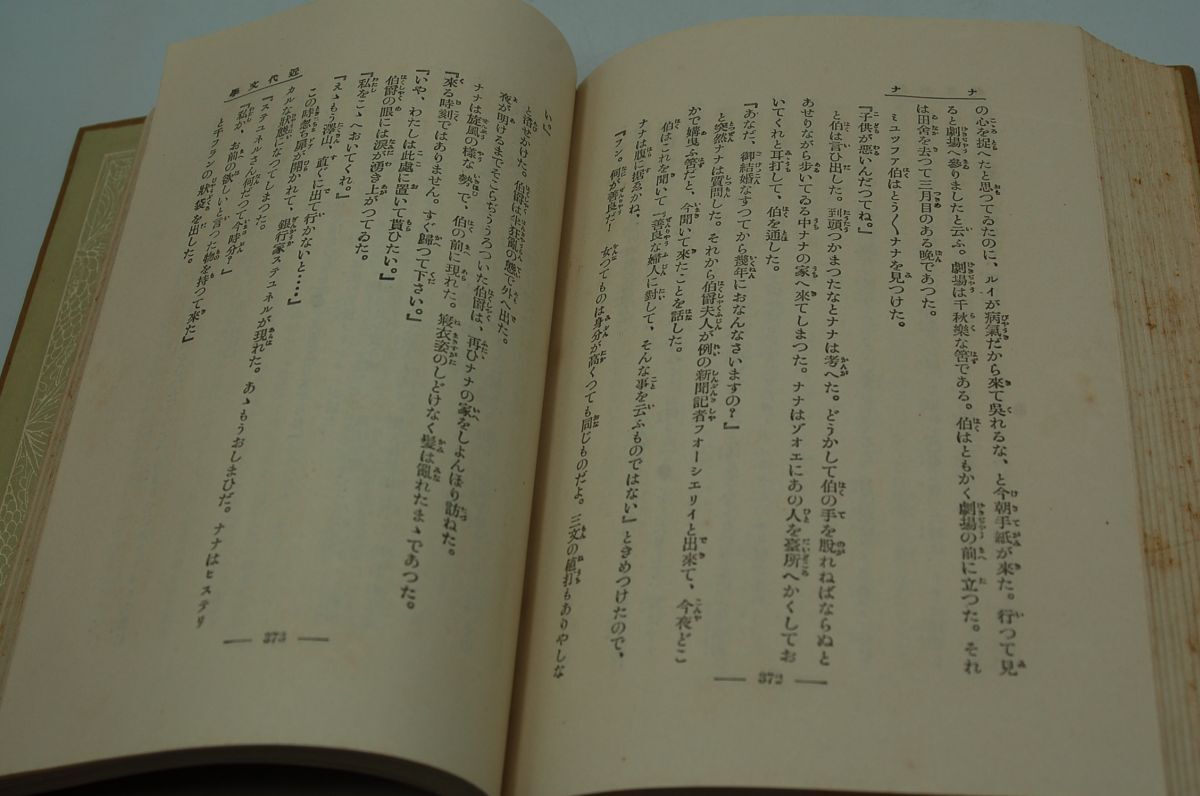 ナナ
の心を捉へたと思つてゐたのに、ルイが病氣だから來て呉れるな、と今朝手紙が來た。行つて見
ると劇場へ參りましたと云ふ。劇場は千秋樂な筈である。伯はともかく劇場の前に立つた。それ
は田舍を去つて三月目のある晩であつた。
ミュッファ伯はとう〱ナナを見つけた。
『子供が惡いんだつてね。』
と伯は言ひ出した。到頭つかまつたなとナナは考へた。どうかして伯の手を脱れねばならぬと
あせりながら歩いてゐる中ナナの家へ來てしまつた。ナナはゾオエにあの人を臺所へかくしてお
いてくれと耳打して、伯を通した。
『あなた、御結婚なすつてから幾年におなんなさいますの？』
と突然ナナは質問した。それから伯爵夫人が例の新聞記者フォーシエリイと出來て、今夜どこ
かで媾曳ふ筈だと、今聞いて來たことを話した。
伯はこれを聞いて『善良な婦人に對して、そんな事を云ふものではない』ときめつけたので、
ナナは腹に据ゑかね、
『フン。何が善良だ！　女つてものは身分が高くつても同じものだよ。三文の値打もありやしな
― 372 ―
近代文學
いさ』
と浴せかけた。伯爵は半狂亂の態で外へ出た。
夜が明けるまでそこらぢううろついた伯爵は、再びナナの家をしよんぼり訪ねた。
ナナは旋風の樣な勢で、伯の前に現れた。寢衣姿のしどけなく髮は亂れたまゝであつた。
『來る時刻ではありません。すぐ歸つて下さい。』
『いや、わたしは此處に置いて貰ひたい。』
伯爵の眼には涙が湧き上がつてゐた。
『私をこゝへおいてくれ。』
『えゝもう澤山、直ぐに出て行かないと‥‥』
この時忽ち扉が開かれて、銀行家ステュネルが現れた。あゝもうおしまひだ。ナナはヒステリ
カルな状態になつてしまつた。
『ステュネルさん何だつて今時分？』
『私か、お前の欲しいと言つた物を持つて來た』
と千フランの状袋を出した。
― 373 ―